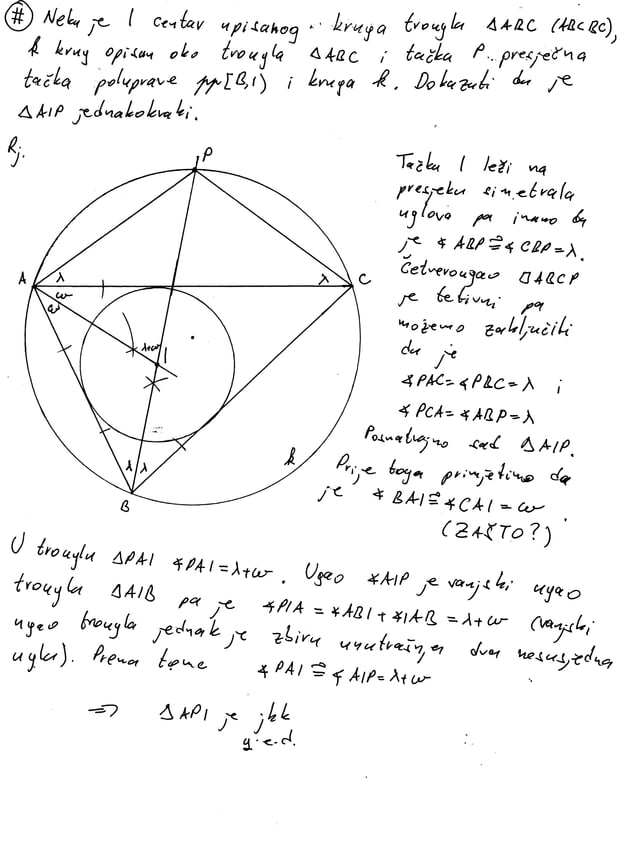 # Neka je I centar upisanog kruga trougla ΔABC (AB<BC),
k krug opisan oko trougla ΔABC i tačka P presječna
tačka poluprave pp[B,I) i kruga k. Dokazati da je
ΔAIP jednakokraki.
Rj.
P
A
λ
ω
ω
λ
C
λ+ω
I
λ
λ
B
k
Tačka I leži na
presjeku simetrala
uglova pa imamo da
je ∢ABP ≅ ∢CBP = λ.
Četverougao □ABCP
je tetivni pa
možemo zaključiti
da je
∢PAC = ∢PBC = λ i
∢PCA = ∢ABP = λ
Posmatrajmo sad ΔAIP.
Prije toga primjetimo da
je ∢BAI ≅ ∢CAI = ω.
(ZAŠTO?)
U trouglu ΔPAI ∢PAI = λ+ω. Ugao ∢AIP je vanjski ugao
trougla ΔAIB pa je ∢PIA = ∢ABI + ∢IAB = λ+ω (vanjski
ugao trougla jednak je zbiru unutrašnja dva nesusjedna
ugla). Prema tome ∢PAI ≅ ∢AIP = λ+ω
⇒ ΔAPI je jkk
q.e.d.